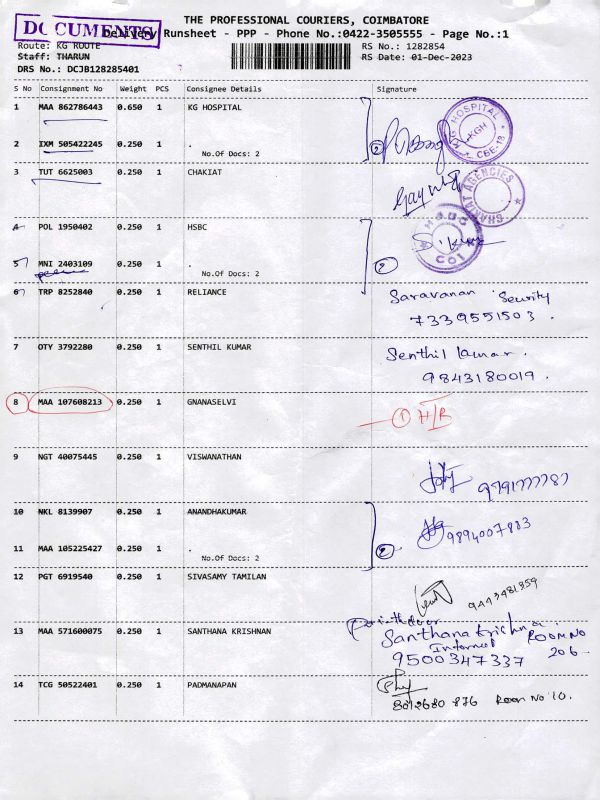 THE PROFESSIONAL COURIERS, COIMBATORE
DOCUMENTS
Delivery Runsheet - PPP - Phone No.:0422-3505555 - Page No.:1
Route: KG ROUTE
RS No.: 1282854
Staff: THARUN
RS Date: 01-Dec-2023
DRS No.: DCJB128285401
S No Consignment No Weight PCS Consignee Details Signature
1 MAA 862786443 0.650 1 KG HOSPITAL
KG HOSPITAL
KGH
CBE-18
2 IXM 505422245 0.250 1 .
2
No.Of Docs: 2
3 TUT 6625003 0.250 1 CHAKIAT
CHAKIAT AGENCIES
4 POL 1950402 0.250 1 HSBC
5 MNI 2403109 0.250 1 .
2
No.Of Docs: 2
6 TRP 8252840 0.250 1 RELIANCE
Saravanan Security
7339551503.
7 OTY 3792280 0.250 1 SENTHIL KUMAR
Senthil kumar.
9843180019.
8 MAA 107608213 0.250 1 GNANASELVI
1 H/B
9 NGT 40075445 0.250 1 VISWANATHAN
10 NKL 8139907 0.250 1 ANANDHAKUMAR
9894007883
11 MAA 105225427 0.250 1 .
2
No.Of Docs: 2
12 PGT 6919540 0.250 1 SIVASAMY TAMILAN
9443481359
13 MAA 571600075 0.250 1 SANTHANA KRISHNAN
Santhana Krishna
ROOM NO
206.
9500347337
14 TCG 50522401 0.250 1 PADMANAPAN
8012680 876 Room No 10.